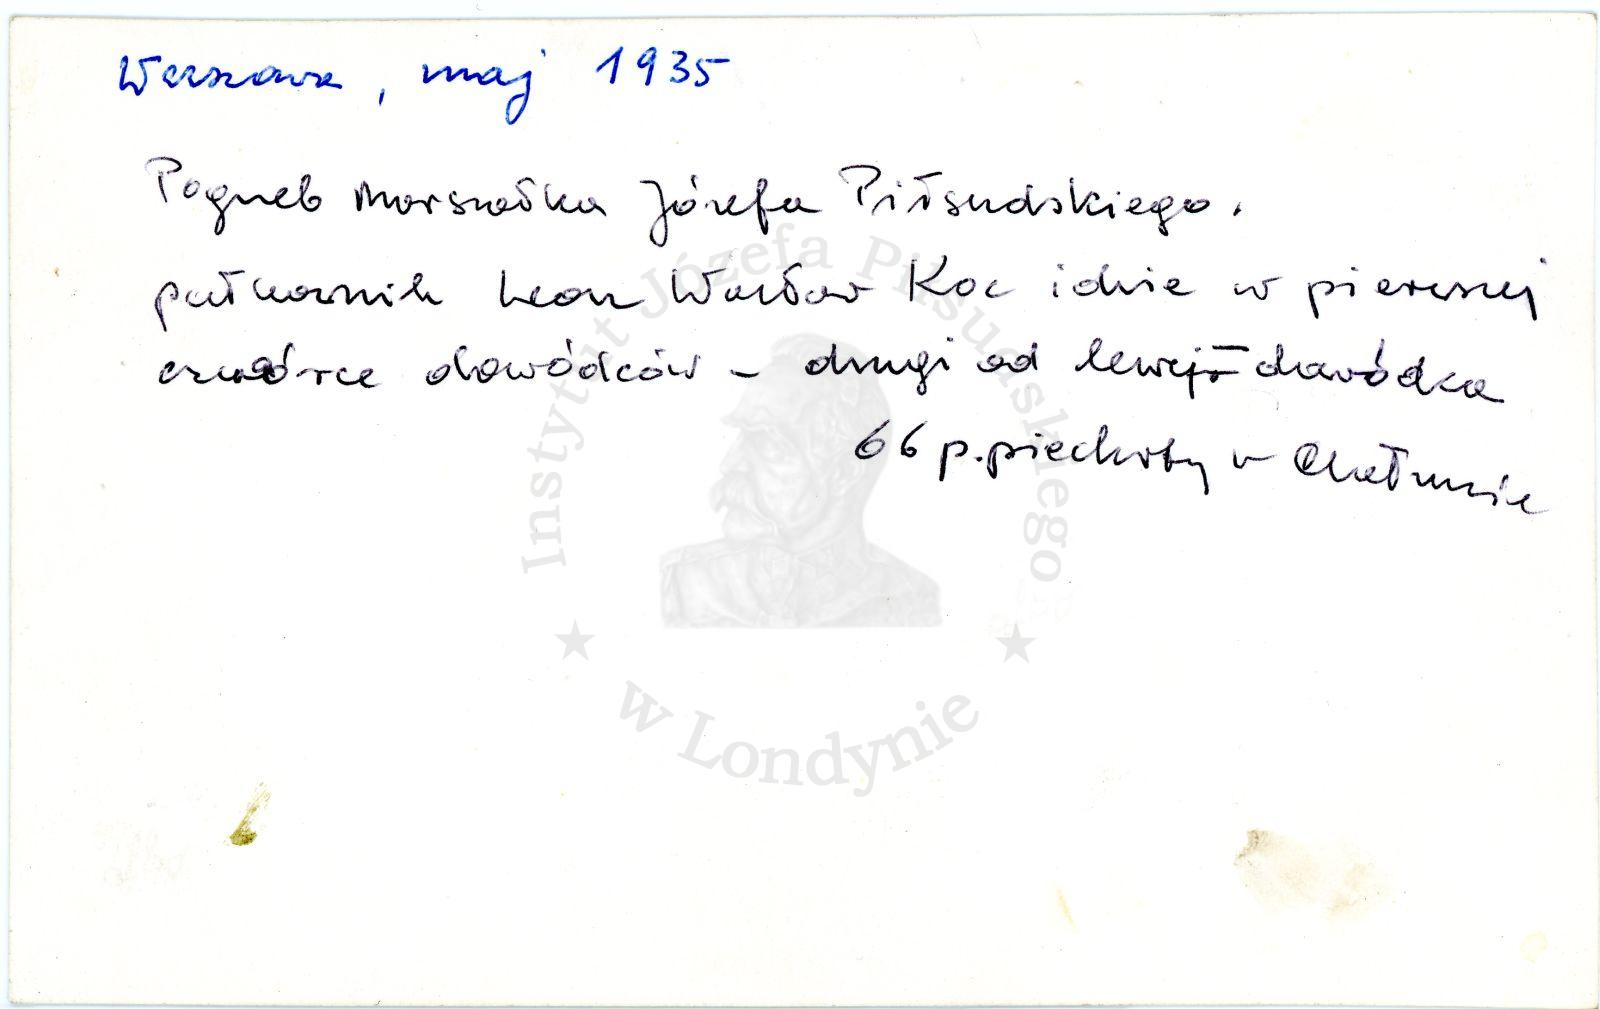 Warszawa, maj 1935
Pogrzeb Marszałka Józefa Piłsudskiego.
pułkownik Leon Wacław Koc idzie w pierwszej
czwórce dowódców – drugi od lewej – dowódca
66 p. piechoty w Chełmnie
Instytut Józefa Piłsudskiego
w Londynie